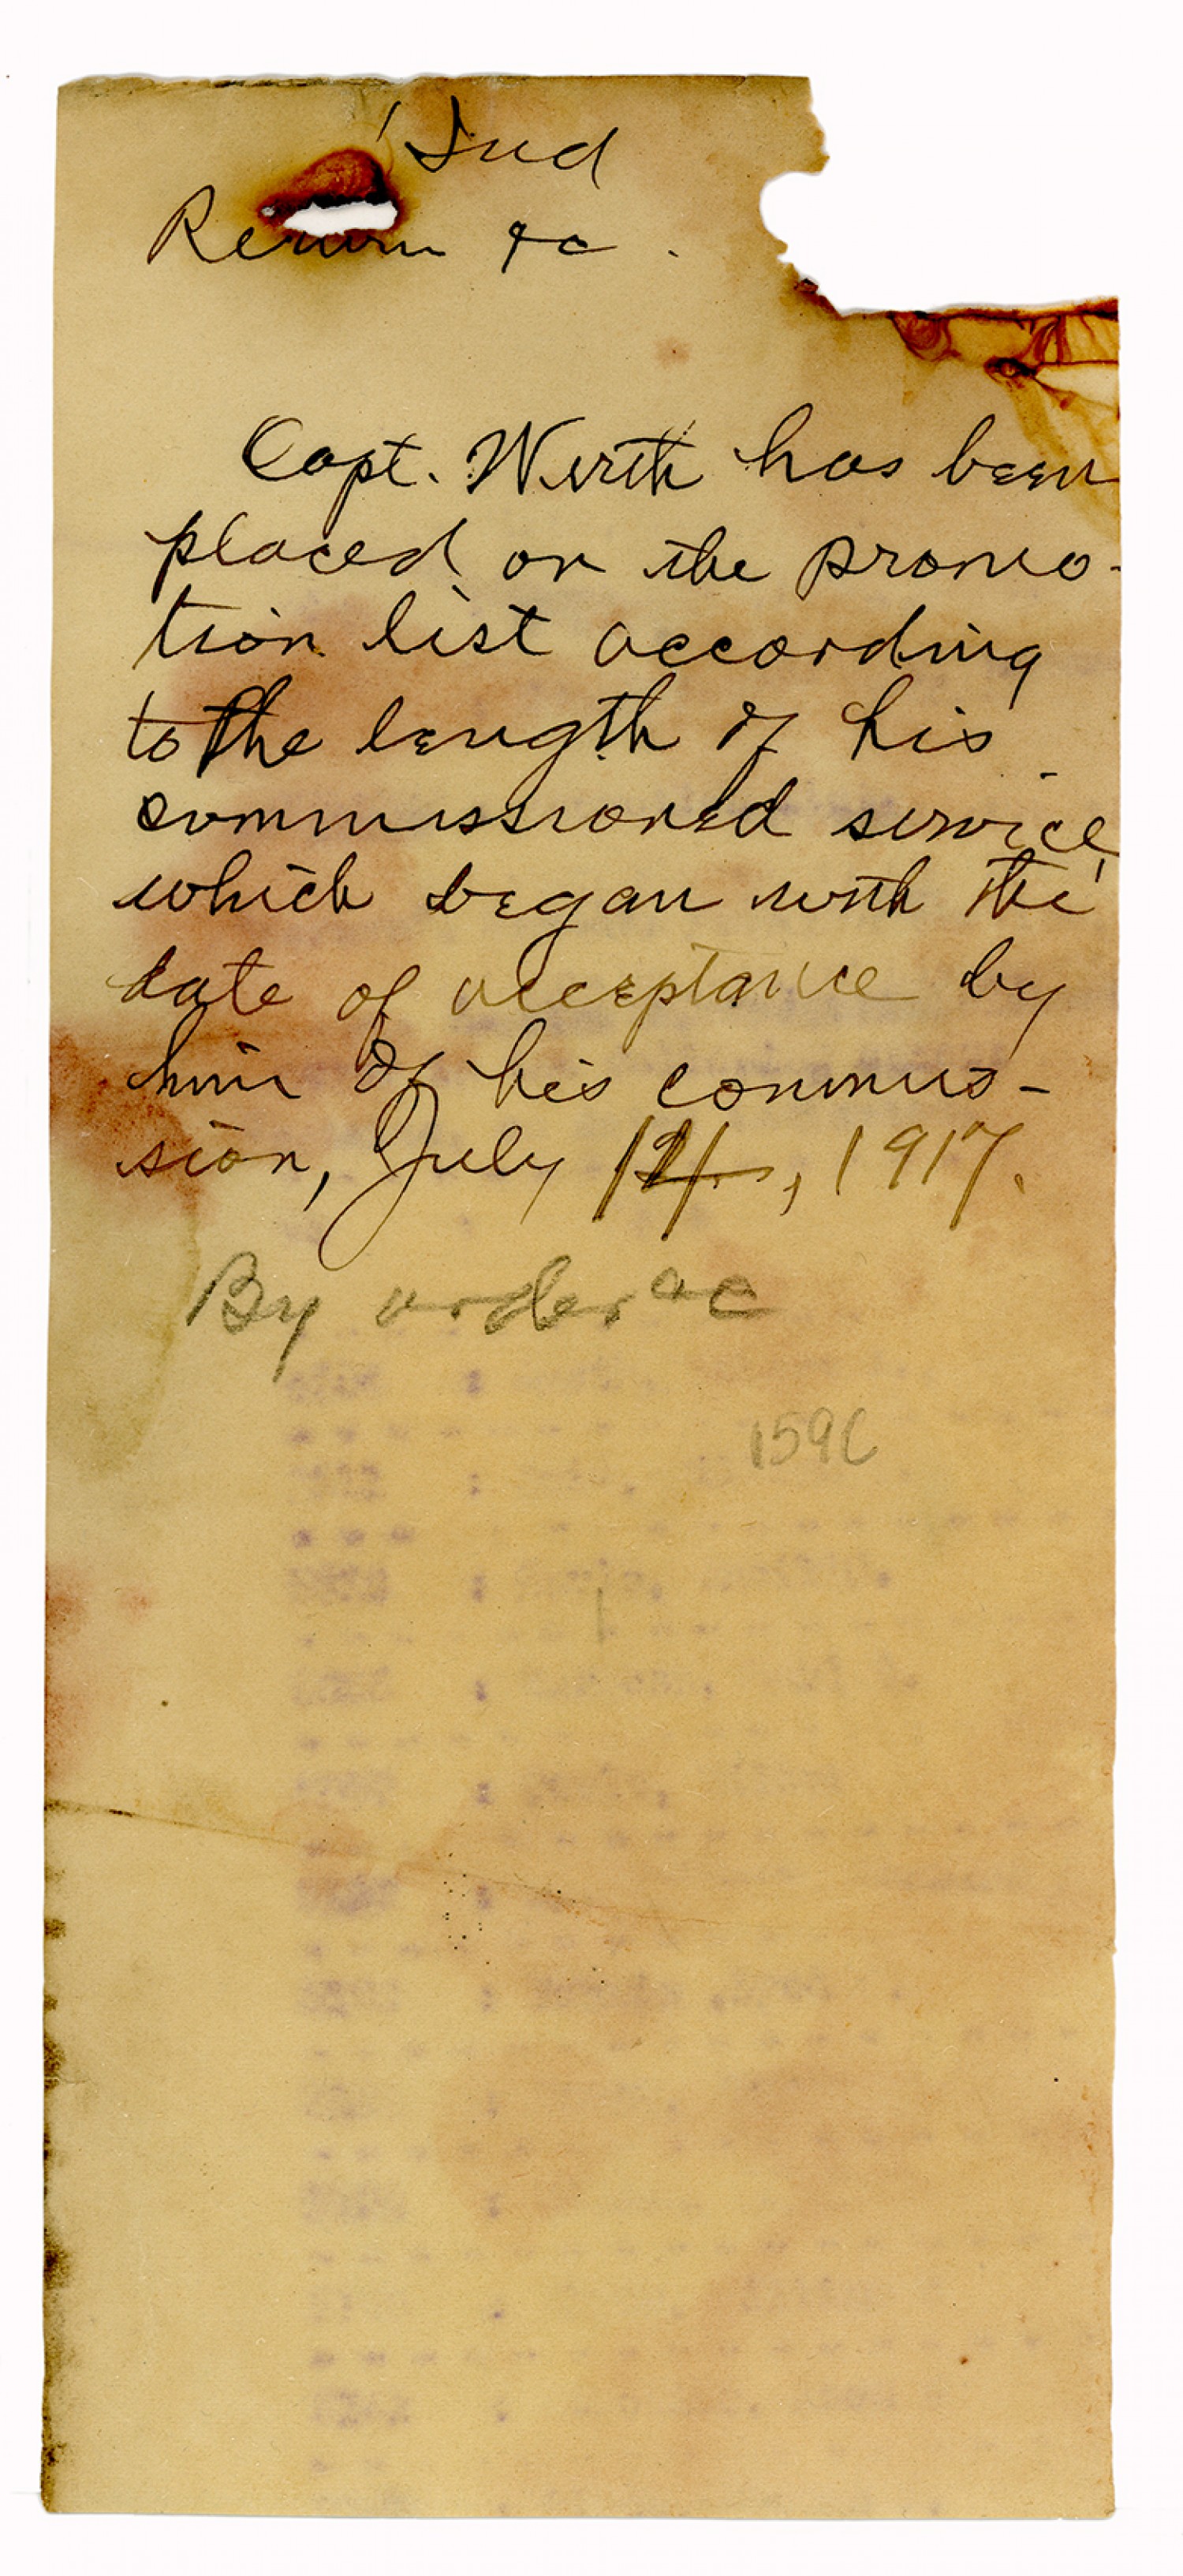 1 Ind
Return &c.
Capt. Wirth has been
placed on the promo-
tion list according
to the length of his
commissioned service,
which began with the
date of acceptance by
him of his commis-
sion, July , 1917.
By order &c
159C